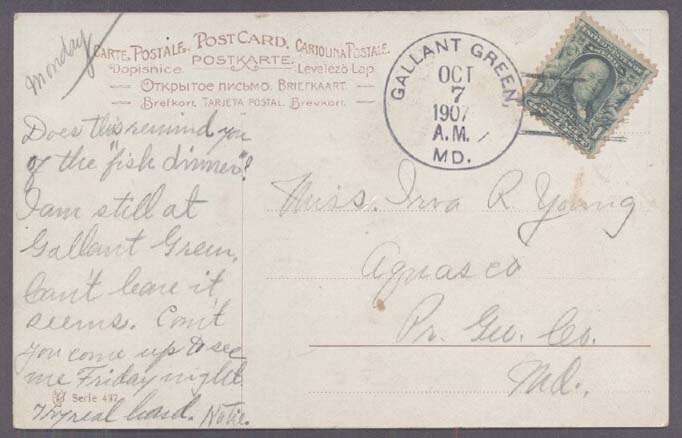 Monday
CARTE POSTALE. POST CARD. CARTOLINA POSTALE.
Dopisnice. POSTKARTE. Levelező Lap.
ОТКРЫТОЕ ПИСЬМО. BRIEFKAART.
Brefkort. TARJETA POSTAL. Brevkort.
GALLANT GREEN,
OCT
7
1907
A.M.
MD.
1 1
Does this remind you
of the "fish dinner"?
I am still at
Gallant Green.
Can't leave it,
seems. Can't
you come up to see
me Friday night
Try real hard. Notie.
Serie 437
Miss. Irva R Young
Aquasco
Pr. Geo. Co.
Md.